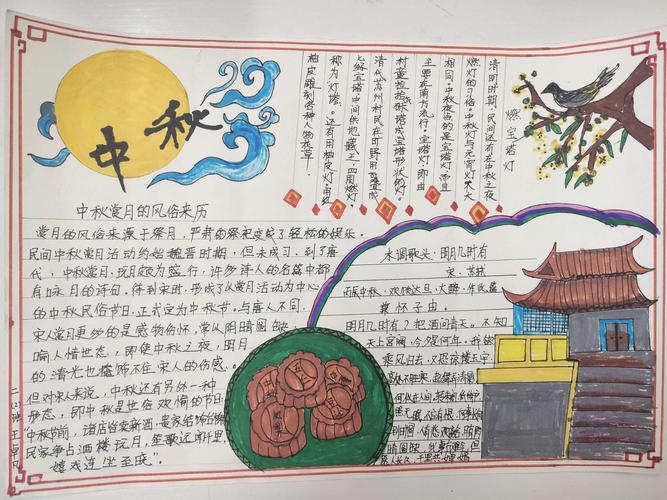 中秋
中秋赏月的风俗来历
赏月的风俗来源于祭月，严肃的祭祀变成了轻松的娱乐。
民间中秋赏月活动约始魏晋时期，但未成习，到了唐
代，中秋赏月、玩月颇为盛行，许多诗人的名篇中都
有咏月的诗句，待到宋时，形成了以赏月活动为中心
的中秋民俗节日，正式定为中秋节。与唐人不同，
宋人赏月更多的是感物伤怀，常以阴晴圆缺，
喻人情世态，即使中秋之夜，明月
的清光也掩饰不住宋人的伤感。
但对宋人来说，中秋还有另外一种
形态，即中秋是世俗欢愉的节日：
"中秋节前，诸店皆卖新酒，贵家结饰台榭
民家争占酒楼玩月，笙歌远闻千里，
嬉戏连坐至晓"。
二(2)班
燃宝塔灯
清明时期，民间还有在中秋之夜
燃灯的习俗。中秋灯与元宵灯大
相同。中秋夜点的是宝塔灯，而且
主要在南方流行。宝塔灯，即由
村童捡拾
清代苏州村民在
上供宝塔中间供地藏王，四周燃灯。
称为灯塔。还有用柚皮灯，
柚皮雕刻各种人物花草，
水调歌头·明月几时有
宋·苏轼
丙辰中秋，欢饮达旦，大醉，作此篇，
兼怀子由。
明月几时有？把酒问青天。不知
天上宫阙，今夕是何年。我欲
乘风归去，又恐琼楼玉宇，
高处不胜寒。起舞弄清影，
何似在人间。